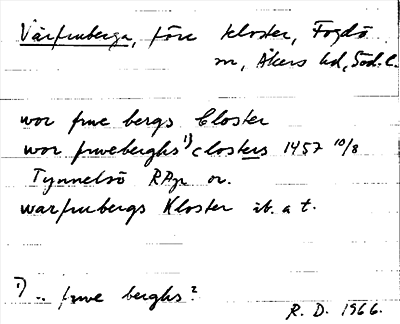 Vårfruberga, före kloster, Fogdö
sn, Åkers hd, Söd. l.
wor frwe bergs Closter
wor frweberghs 1) closters 1457 10/8
Tynnelsö RApr or.
warfrubergs Kloster ib. a t.
1) .. frwe berghs?
R. D. 1966.